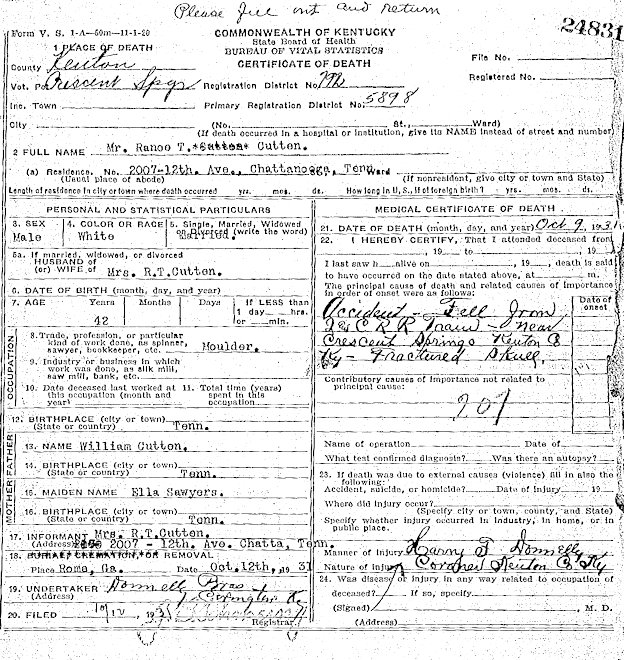 Please fill out and return
24831
Form V. S. 1-A—50m—11-1-20
COMMONWEALTH OF KENTUCKY
State Board of Health
BUREAU OF VITAL STATISTICS
CERTIFICATE OF DEATH
1 PLACE OF DEATH
County Kenton
File No.
Vot. Pct Crescent Spgs
Registration District No.
Registered No.
Inc. Town
Primary Registration District No. 5898
City (No. St., Ward)
(If death occurred in a hospital or institution, give its NAME instead of street and number)
2 FULL NAME Mr. Ranoo T. Cutten.
(a) Residence. No. 2007-12th. Ave., Chattanooga, Tenn. Ward
(Usual place of abode) (If nonresident, give city or town and State)
Length of residence in city or town where death occurred yrs. mos. ds. How long in U, S., if of foreign birth? yrs. mos. ds.
PERSONAL AND STATISTICAL PARTICULARS
3. SEX Male
4. COLOR OR RACE White
5. Single, Married, Widowed or Divorced (write the word) Married.
5a. If married, widowed, or divorced
HUSBAND of
(or) WIFE of Mrs. R.T.Cutten.
6. DATE OF BIRTH (month, day, and year)
7. AGE Years Months Days If LESS than
42 1 day hrs. or min.
OCCUPATION
8. Trade, profession, or particular
kind of work done, as spinner,
sawyer, bookkeeper, etc. Moulder.
9. Industry or business in which
work was done, as silk mill,
saw mill, bank, etc.
10. Date deceased last worked at this occupation (month and year)
11. Total time (years) spent in this occupation
12. BIRTHPLACE (city or town)
(State or country) Tenn.
FATHER
13. NAME William Cutton.
14. BIRTHPLACE (city or town)
(State or country) Tenn.
MOTHER
15. MAIDEN NAME Ella Sawyers.
16. BIRTHPLACE (city or town)
(State or country) Tenn.
17. INFORMANT Mrs. R.T.Cutten.
(Address) 2007 - 12th. Ave. Chatta, Tenn.
18. BURIAL, CREMATION, OR REMOVAL
Place Rome, Ga. Date Oct.12th, 1931
19. UNDERTAKER Donnelly Bros
(Address) Covington Ky.
20. FILED 10/12, 1931
Registrar.
MEDICAL CERTIFICATE OF DEATH
21. DATE OF DEATH (month, day, and year) Oct 9, 1931
22. I HEREBY CERTIFY, That I attended deceased from
, 19 to , 19
I last saw h alive on , 19 , death is said
to have occurred on the date stated above, at m.
The principal cause of death and related causes of importance
in order of onset were as follows:
Date of onset
Accident - Fell from
R R Train - near
Crescent Springs Kenton Co
Ky - Fractured Skull.
Contributory causes of importance not related to
principal cause:
207
Name of operation Date of
What test confirmed diagnosis? Was there an autopsy?
23. If death was due to external causes (violence) fill in also the
following:
Accident, suicide, or homicide? Date of injury 19
Where did injury occur?
(Specify city or town, county, and State)
Specify whether injury occurred in industry, in home, or in
public place.
Manner of injury Harry F Donnelly
Nature of injury Coroner Kenton Co Ky
24. Was disease or injury in any way related to occupation of
deceased? If so, specify
(Signed) , M. D.
(Address)